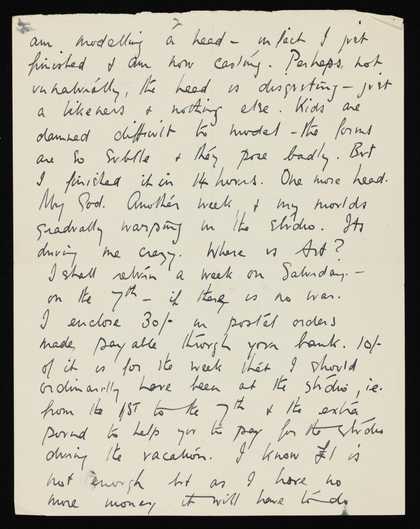 2
am modelling a head – in fact I just
finished & am now casting. Perhaps, not
unnaturally, the head is disgusting – just
a likeness & nothing else. Kids are
damned difficult to model – the forms
are so subtle & they pose badly. But
I finished it in 14 hours. One more head.
My God. Another week & my moulds
gradually warping in the studio. Its
driving me crazy. Where is Art?
I shall return a week on Saturday. –
on the 7th – if there is no war.
I enclose 30/- in postal orders
made payable through your bank. 10/-
of it is for the week that I should
ordinarily have been at the studio, i.e.
from the 1st to the 7th & the extra
pound to help you to pay for the studio
during the vacation. I know £1 is
not enough but as I have no
more money it will have to do